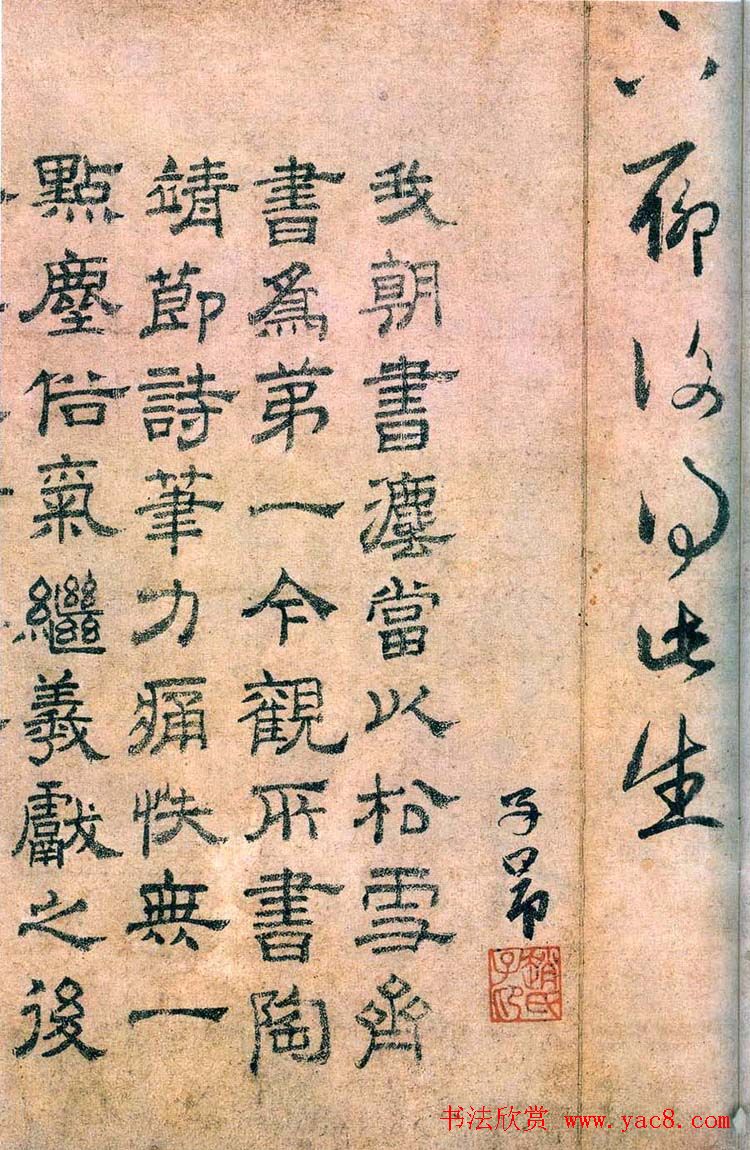 下聊復得此生
子昂
趙氏子昂
我朝書當以松雪齋
書爲第一今觀所書陶
靖節詩筆力痛快無一
點塵俗氣繼羲獻之後
书法欣赏 www.yac8.com